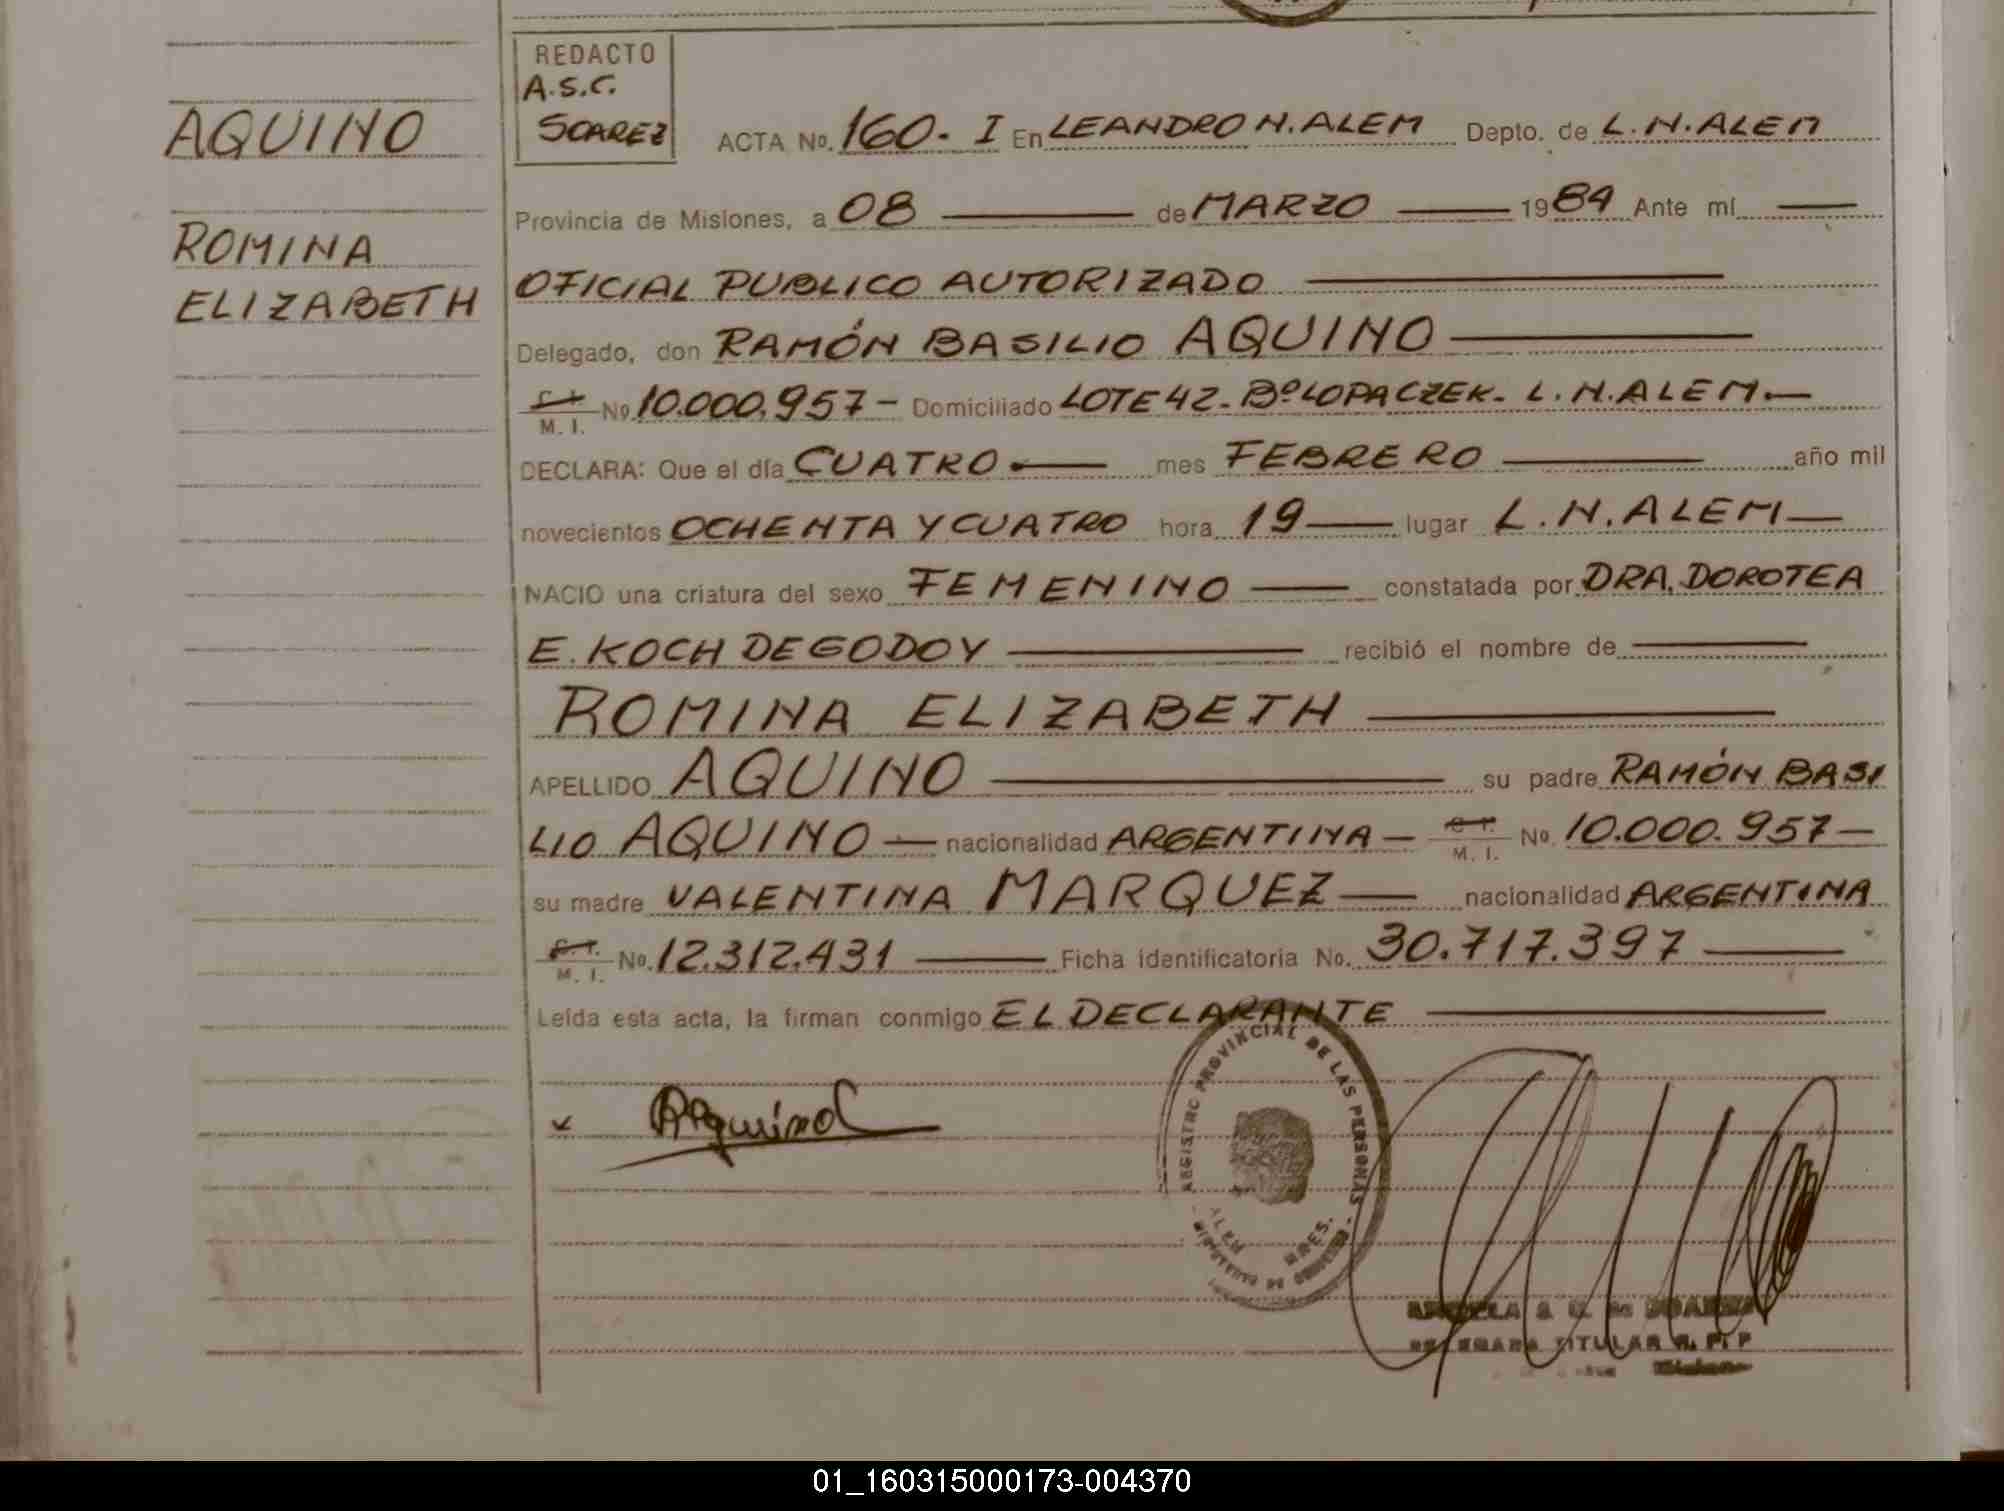 AQUINO
ROMINA
ELIZABETH
REDACTO
A.S.C.
SOAREZ
ACTA No. 160.- I En LEANDRO N. ALEM Depto. de L.N. ALEM
Provincia de Misiones, a 08 de MARZO 1984 Ante mí
OFICIAL PUBLICO AUTORIZADO
Delegado, don RAMÓN BASILIO AQUINO
C.I. M.I. No. 10.000.957- Domiciliado LOTE 42- Bº LOPACZEK- L.N. ALEM.-
DECLARA: Que el día CUATRO.- mes FEBRERO año mil
novecientos OCHENTA Y CUATRO hora 19 lugar L.N. ALEM
NACIO una criatura del sexo FEMENINO constatada por DRA. DOROTEA
E. KOCH DE GODOY recibió el nombre de
ROMINA ELIZABETH
APELLIDO AQUINO su padre RAMÓN BASI
LIO AQUINO nacionalidad ARGENTINA C.I. M.I. No. 10.000.957-
su madre VALENTINA MARQUEZ nacionalidad ARGENTINA
C.I. M.I. No. 12.312.431 Ficha identificatoria No. 30.717.397
Leída esta acta, la firman conmigo EL DECLARANTE
Aquino
REGISTRO PROVINCIAL DE LAS PERSONAS
ALEM MNES.
TITULAR R. P. P
01_160315000173-004370